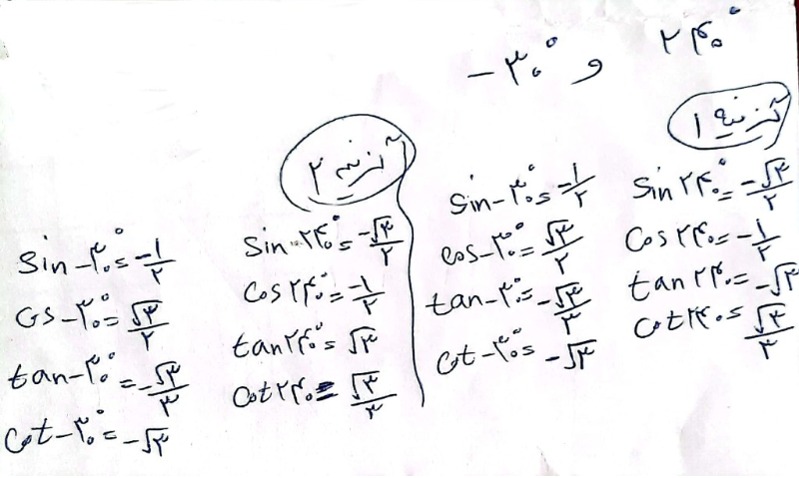 ۲۴۰° و -۳۰°
گزینه ۱
sin ۲۴۰° = -√۳/۲
cos ۲۴۰ = -۱/۲
tan ۲۴۰ = -√۳
cot ۲۴۰ = √۳/۳
sin -۳۰° = -۱/۲
cos -۳۰° = √۳/۲
tan -۳۰° = -√۳/۳
cot -۳۰° = -√۳
گزینه ۲
sin ۲۴۰° = -√۳/۲
cos ۲۴۰° = -۱/۲
tan ۲۴۰° = √۳
cot ۲۴۰ = √۳/۳
sin -۳۰° = -۱/۲
cos -۳۰° = √۳/۲
tan -۳۰° = -√۳/۳
cot -۳۰° = -√۳